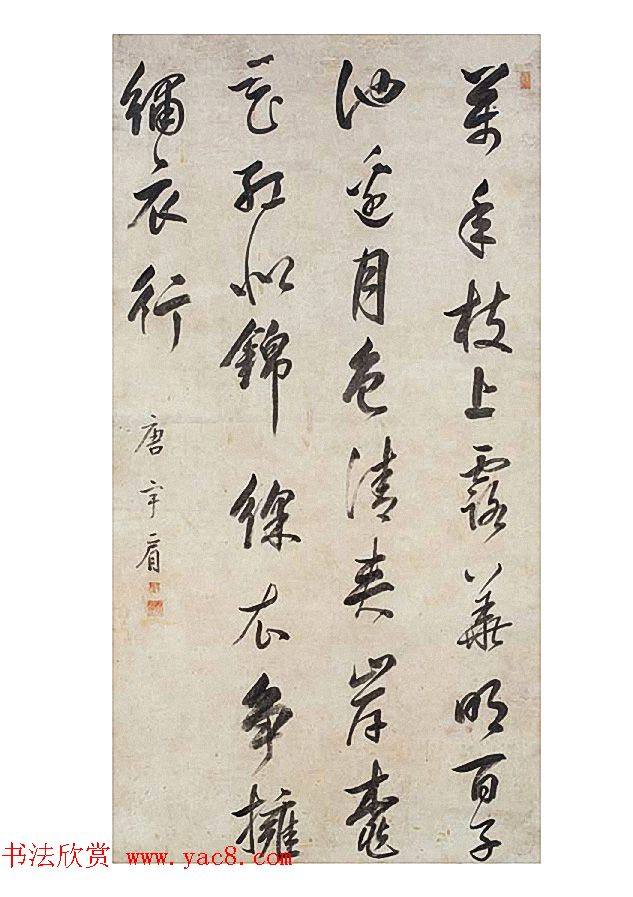 萬年枝上露華明百子
池邊月色清夾岸桃
花紅似錦綵衣爭擁
繡衣行
唐宇肩
书法欣赏 www.yac8.com